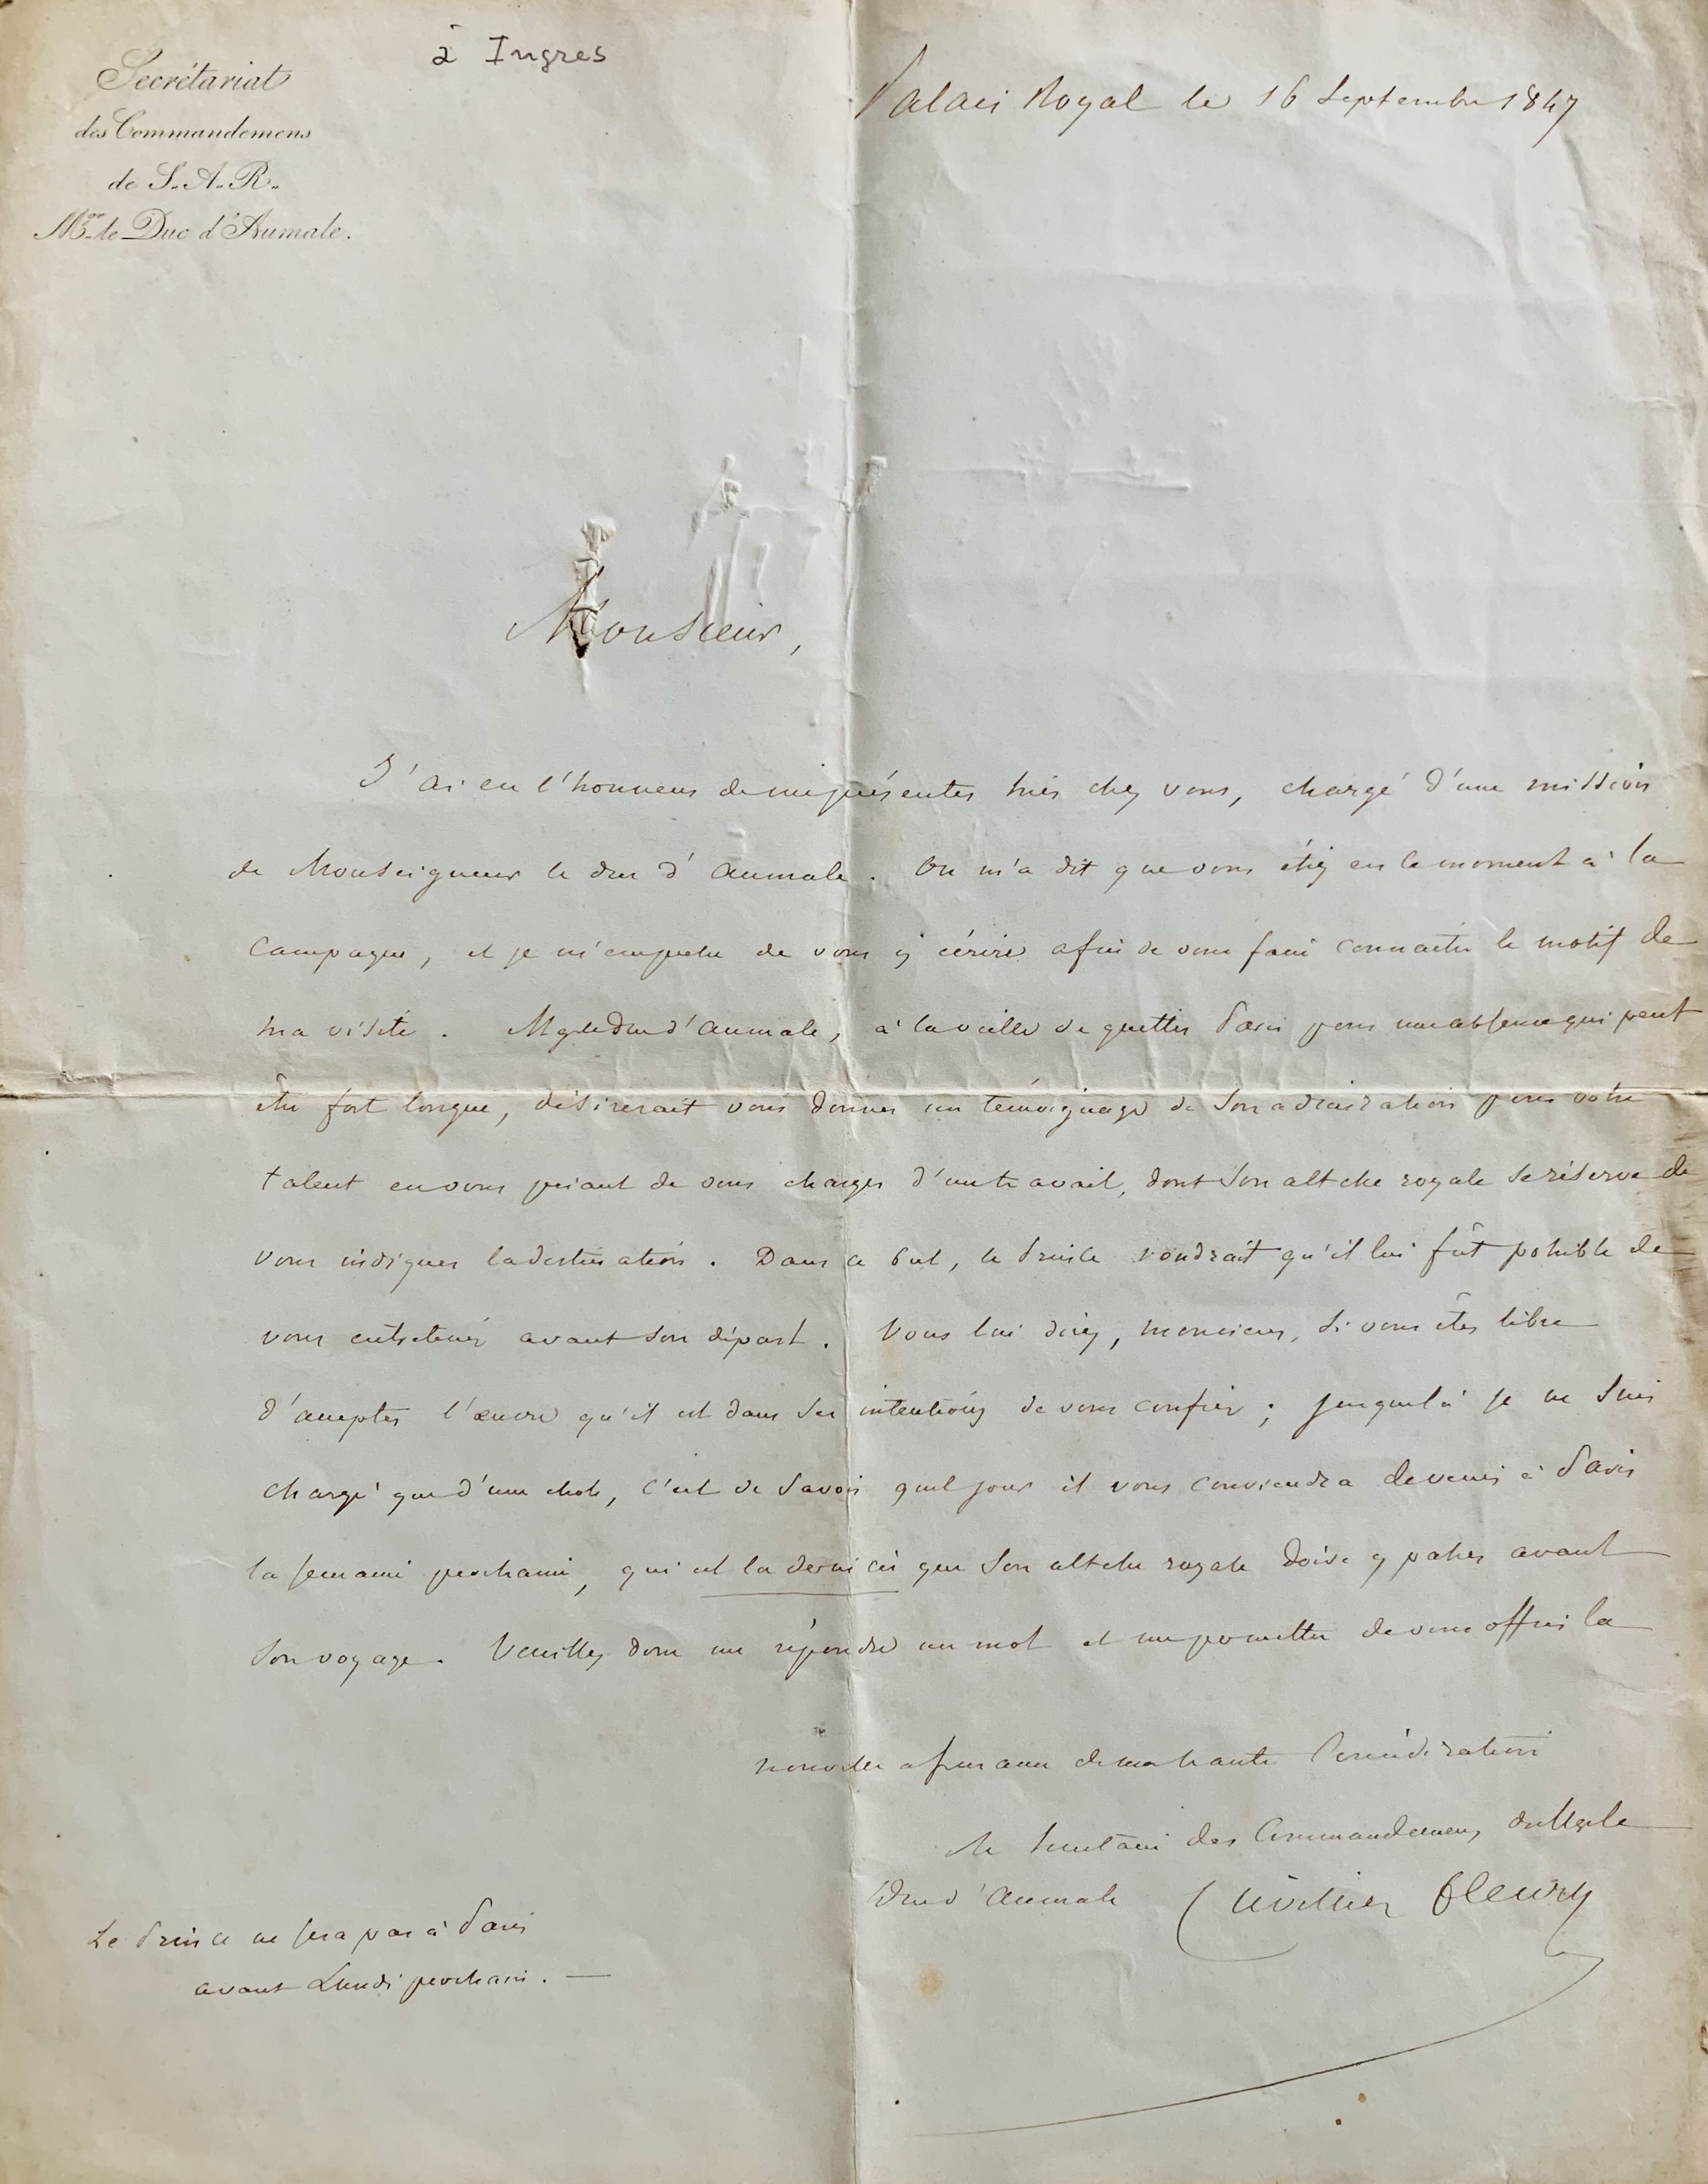 à Ingres
Secrétariat
des Commandemens
de S. A. R.
Mgr le Duc d'Aumale.
Palais Royal le 16 Septembre 1847
Monsieur,
J'ai eu l'honneur de me présenter hier chez vous, chargé d'une mission
de Monseigneur le duc d'Aumale. On m'a dit que vous étiez en ce moment à la
campagne, et je m'empresse de vous y écrire afin de vous faire connaitre le motif de
ma visite. Mgr le Duc d'Aumale, à la veille de quitter Paris pour une absence qui peut
être fort longue, désirerait vous donner un témoignage de son admiration pour votre
talent en vous priant de vous charger d'un travail, dont son altesse royale se réserve de
vous indiquer la destination. Dans ce but, le Prince voudrait qu'il lui fût possible de
vous entretenir avant son départ. Vous lui direz, monsieur, si vous êtes libre
d'accepter l'œuvre qu'il est dans ses intentions de vous confier ; jusque là je ne suis
chargé que d'une chose, c'est de savoir quel jour il vous conviendra de venir à Paris
la semaine prochaine, qui est la dernière que son altesse royale doive y passer avant
son voyage. Veuillez donc me répondre un mot et me permettre de vous offrir la
nouvelle assurance de ma haute considération
Le Secrétaire des Commandemens de Mgr le
Duc d'Aumale Cuvillier Fleury
Le Prince ne sera pas à Paris
avant Lundi prochain. —